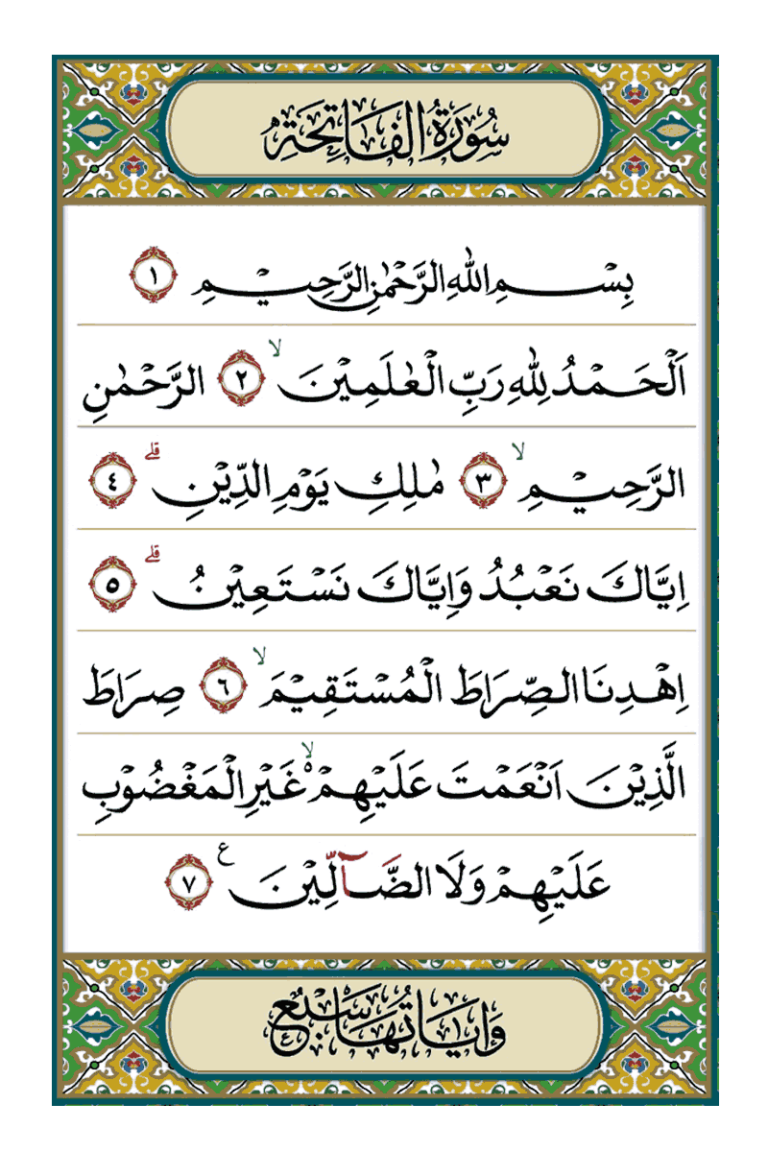 سُورَةُ الفَاتِحَةِ
بِسْمِ اللهِ الرَّحْمٰنِ الرَّحِيْمِ ١
اَلْحَمْدُ لِلّٰهِ رَبِّ الْعٰلَمِيْنَ ۙ ٢ الرَّحْمٰنِ
الرَّحِيْمِ ۙ ٣ مٰلِكِ يَوْمِ الدِّيْنِ ۗ ٤
اِيَّاكَ نَعْبُدُ وَاِيَّاكَ نَسْتَعِيْنُ ۗ ٥
اِهْدِنَا الصِّرَاطَ الْمُسْتَقِيْمَ ۙ ٦ صِرَاطَ
الَّذِيْنَ اَنْعَمْتَ عَلَيْهِمْ ەۙ غَيْرِ الْمَغْضُوْبِ
عَلَيْهِمْ وَلَا الضَّاۤلِّيْنَ ࣖ ٧
وَاٰيَاتُهَا سَبْعٌ